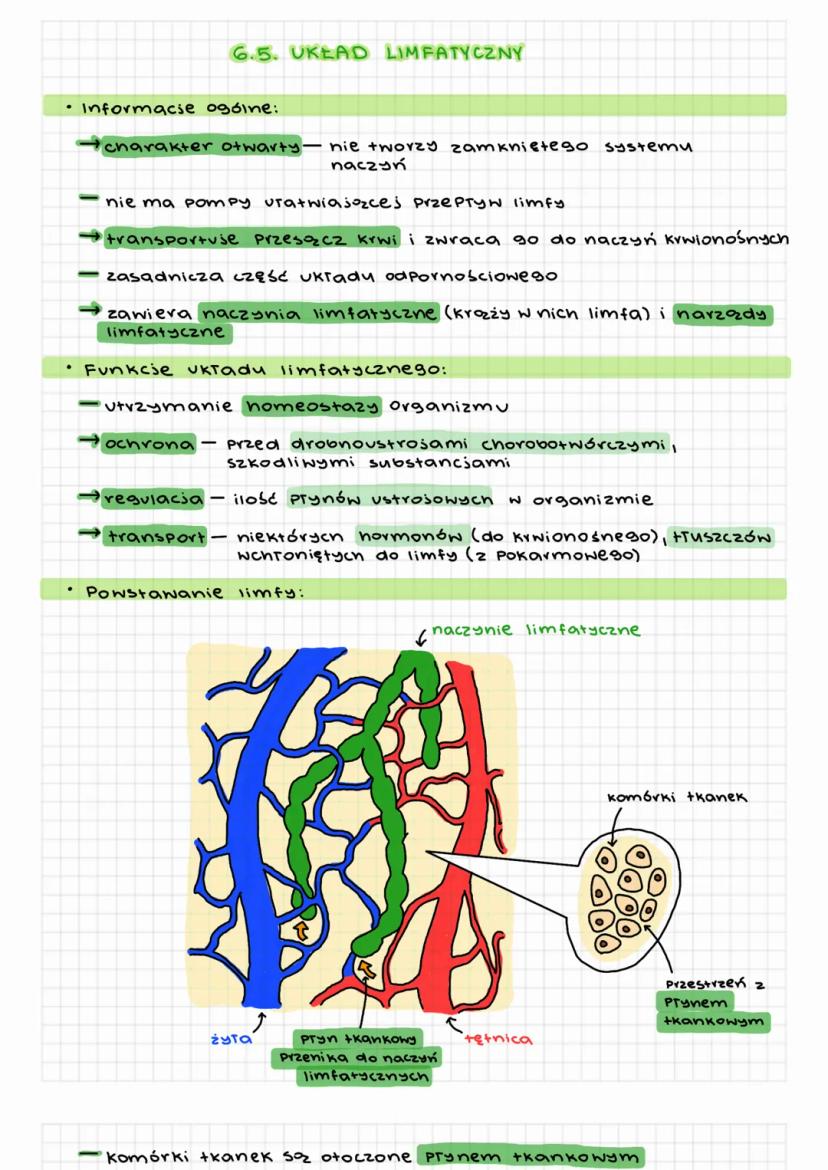 6.5. UKŁAD LIMFATYCZNY
• Informacje ogólne:
→ charakter otwarty — nie tworzy zamkniętego systemu
naczyń
— nie ma pompy ułatwiającej przepływ limfy
→ transportuje przesącz krwi i zwraca go do naczyń krwionośnych
— zasadnicza część układu odpornościowego
→ zawiera naczynia limfatyczne (krąży w nich limfa) i narządy
limfatyczne
• Funkcje układu limfatycznego:
— utrzymanie homeostazy organizmu
→ ochrona — przed drobnoustrojami chorobotwórczymi,
szkodliwymi substancjami
→ regulacja — ilość płynów ustrojowych w organizmie
→ transport — niektórych hormonów (do krwionośnego), tłuszczów
wchłoniętych do limfy (z pokarmowego)
• Powstawanie limfy:
naczynie limfatyczne
komórki tkanek
przestrzeń z
płynem
tkankowym
żyła
płyn tkankowy
przenika do naczyń
limfatycznych
tętnica
— komórki tkanek są otoczone płynem tkankowym